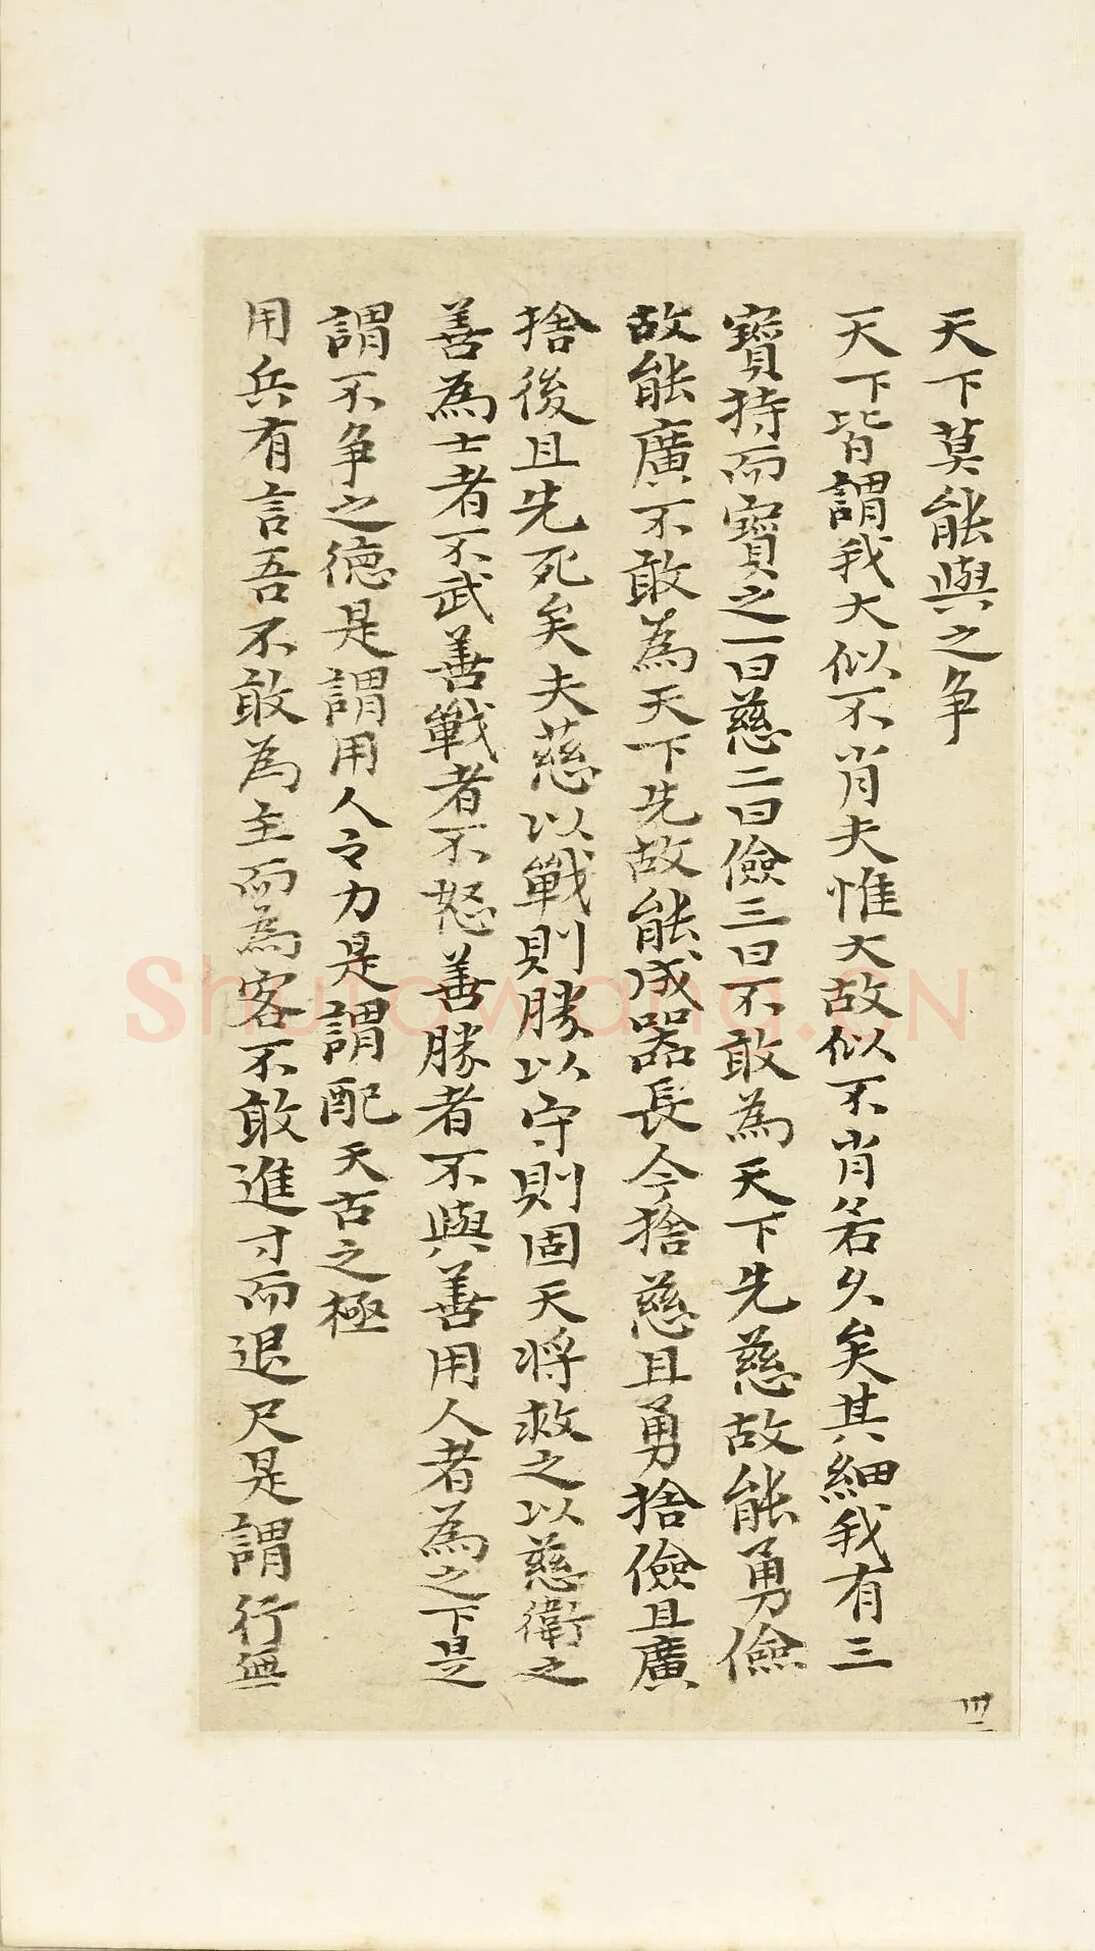 天下莫能與之争
天下皆謂我大似不肖夫惟大故似不肖若久矣其細我有三
寶持而寶之一曰慈二曰儉三曰不敢為天下先慈故能勇儉
故能廣不敢為天下先故能成器長今捨慈且勇捨儉且廣
捨後且先死矣夫慈以戰則勝以守則固天將救之以慈衛之
善為士者不武善戰者不怒善勝者不與善用人者為之下是
謂不争之德是謂用人之力是謂配天古之極
用兵有言吾不敢為主而為客不敢進寸而退尺是謂行無
卅一
Shufawang.CN